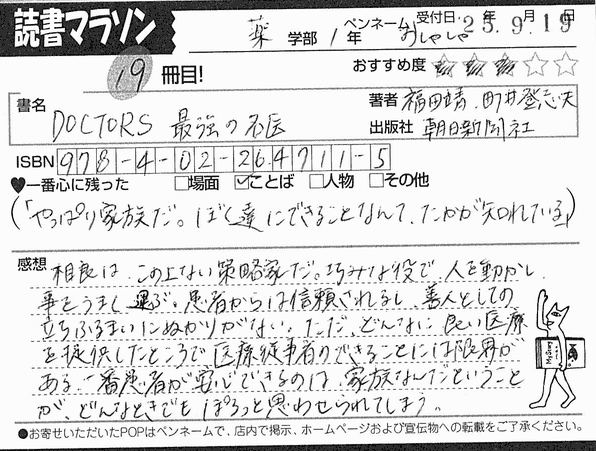 読書マラソン
薬 学部 1年 ペンネーム おしゃしゃ 受付日・25年9月19日
19 冊目!
おすすめ度 ★★★☆☆
書名 DOCTORS 最強の名医
著者 福田靖、町井登志夫
出版社 朝日新聞社
ISBN 978-4-02-264711-5
♥一番心に残った □場面 ☑ことば □人物 □その他
(「やっぱり家族だ。ぼく達にできることなんて、たかが知れている」)
感想 相良は、この上ない策略家だ。巧みな役で、人を動かし、
事をうまく運ぶ。患者からは信頼されるし、善人としての
立ちふるまいにぬかりがない。ただ、どんなに良い医療
を提供したところで医療従事者のできることには限界が
ある。一番患者が安心できるのは、家族なんだということ
が、どんなときでも ぽろっと思わせられてしまう。
●お寄せいただいたPOPはペンネームで、店内で掲示、ホームページおよび宣伝物への転載をご了承ください。